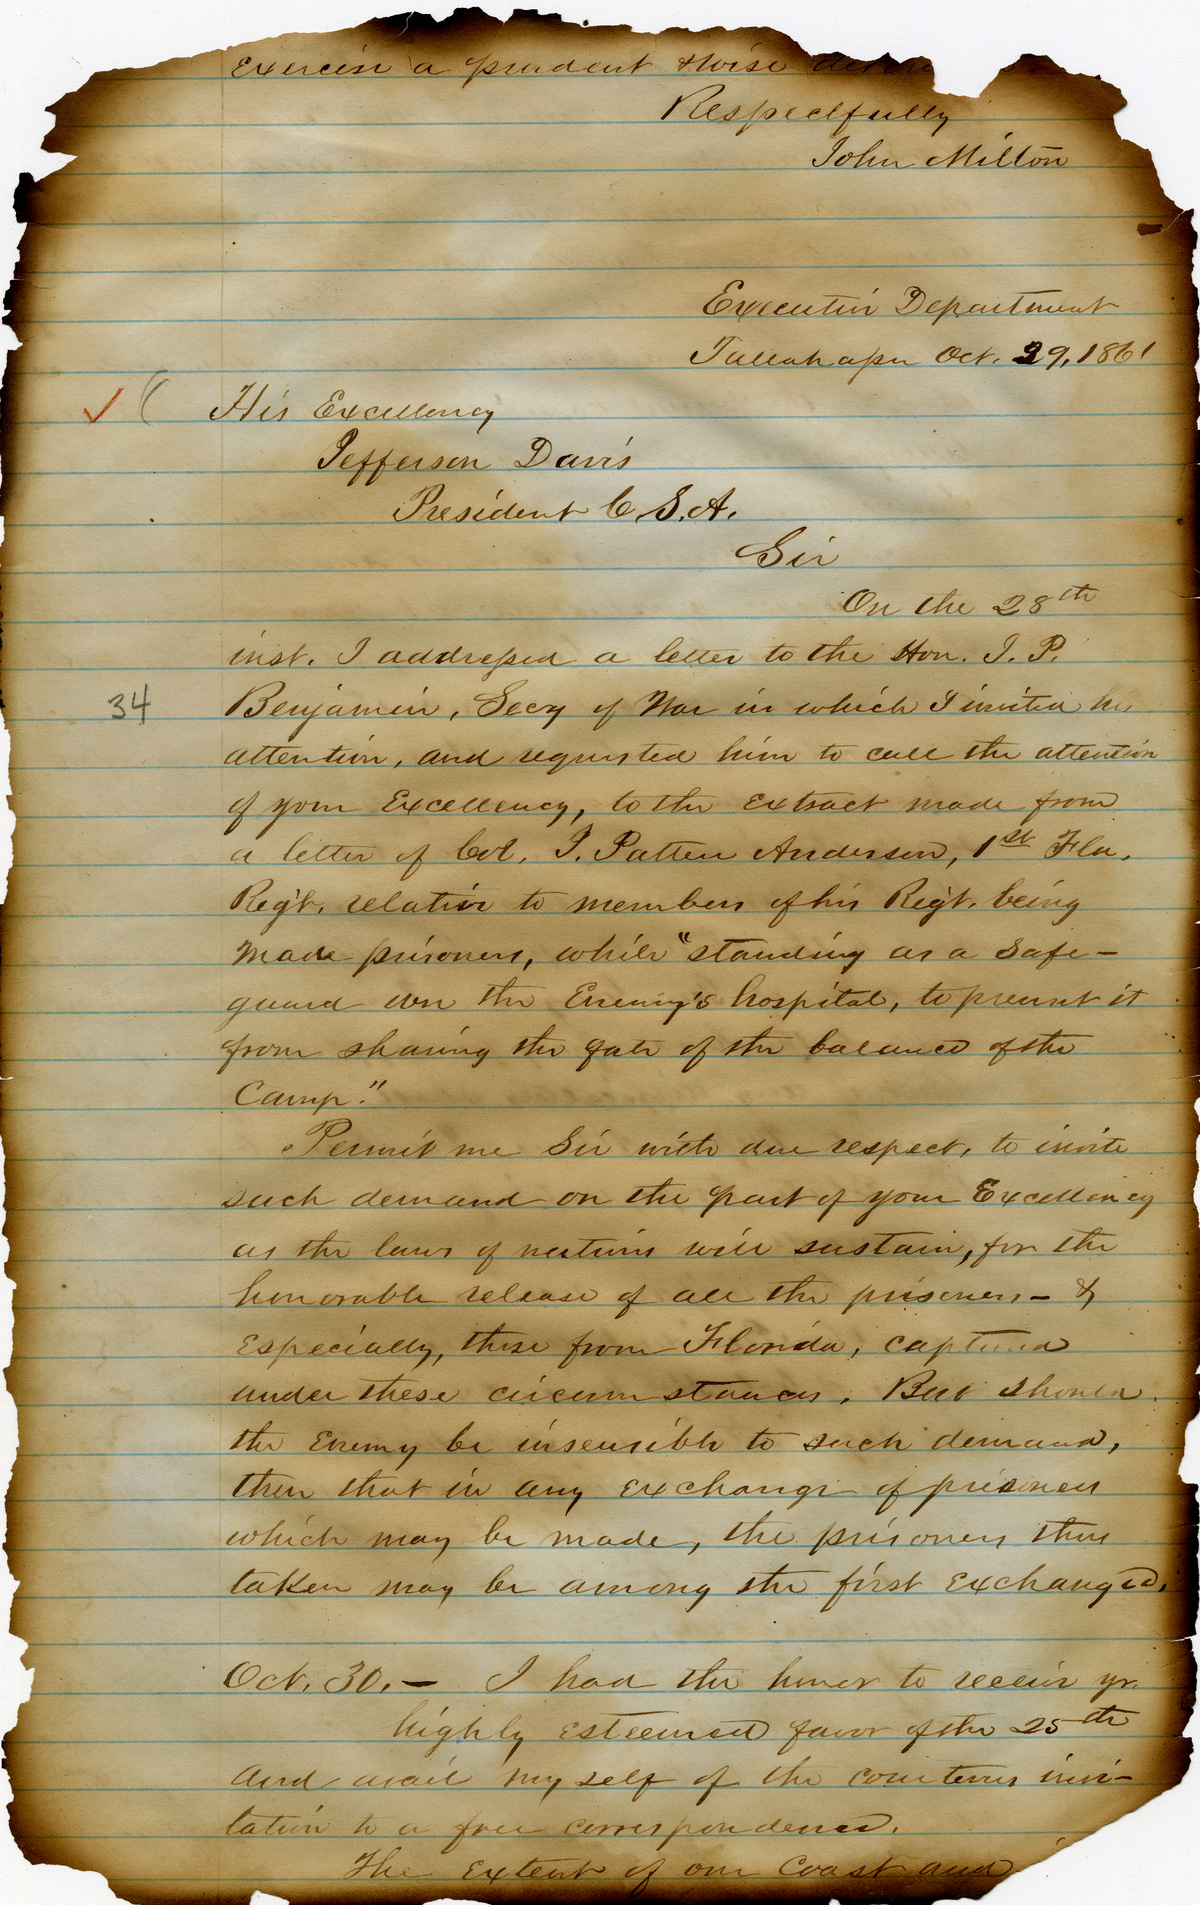 Exercise a prudent & wise
Respectfully
John Milton
Executive Department
Tallahassee Oct. 29, 1861
His Excellency
Jefferson Davis
President C.S.A.
Sir
On the 28th
inst. I addressed a letter to the Hon. J. P.
34
Benjamin, Secy of War in which I invited his
attention, and requested him to call the attention
of your Excellency, to the extract made from
a letter of Col. J. Patten Anderson, 1st Fla.
Reg't. relative to members of his Reg't. being
made prisoners, while "standing as a safe-
guard over the Enemy's hospital, to prevent it
from sharing the fate of the balance of the
Camp."
Permit me Sir with due respect, to invite
such demand on the part of your Excellency
as the laws of nations will sustain, for the
honorable release of all the prisoners - &
especially, those from Florida, captured
under these circumstances. But should
the Enemy be insensible to such demand,
then that in any exchange of prisoners
which may be made, the prisoners thus
taken may be among the first exchanged.
Oct. 30. - I had the honor to receive yr.
highly esteemed favor of the 25th
and avail myself of the courteous invi-
tation to a free correspondence.
The extent of our Coast and